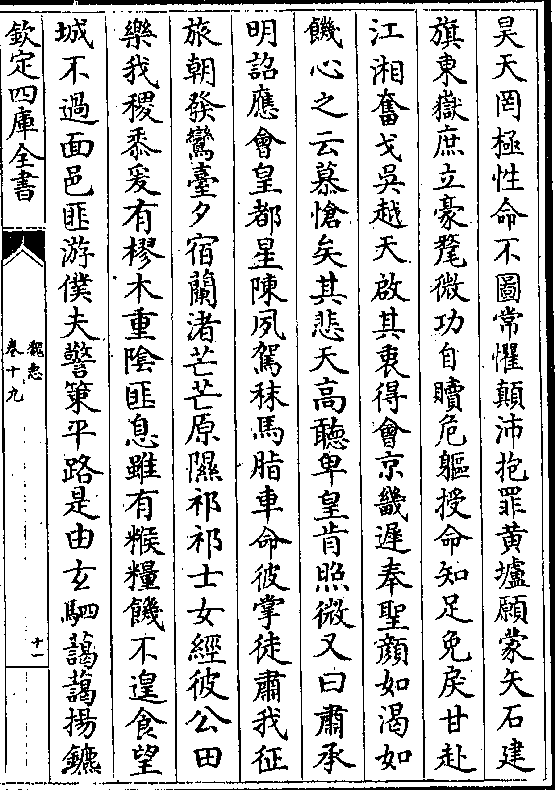 昊天罔極性命不圖常懼顛沛抱罪黄壚願蒙矢石建
旗東嶽庶立豪氂微功自贖危軀授命知足免戾甘赴
江湘奮戈吳越天啟其衷得會京畿遲奉聖顔如渴如
饑心之云慕愴矣其悲天高聽卑皇肯照微又曰肅承
明詔應會皇都星陳夙駕秣馬脂車命彼掌徒肅我征
旅朝發鸞臺夕宿蘭渚芒芒原隰祁祁士女經彼公田
樂我稷黍爰有樛木重陰匪息雖有糇糧饑不遑食望
城不過面邑匪游僕夫警策平路是由玄駟藹藹揚鑣
欽定四庫全書
魏志
卷十九
十一